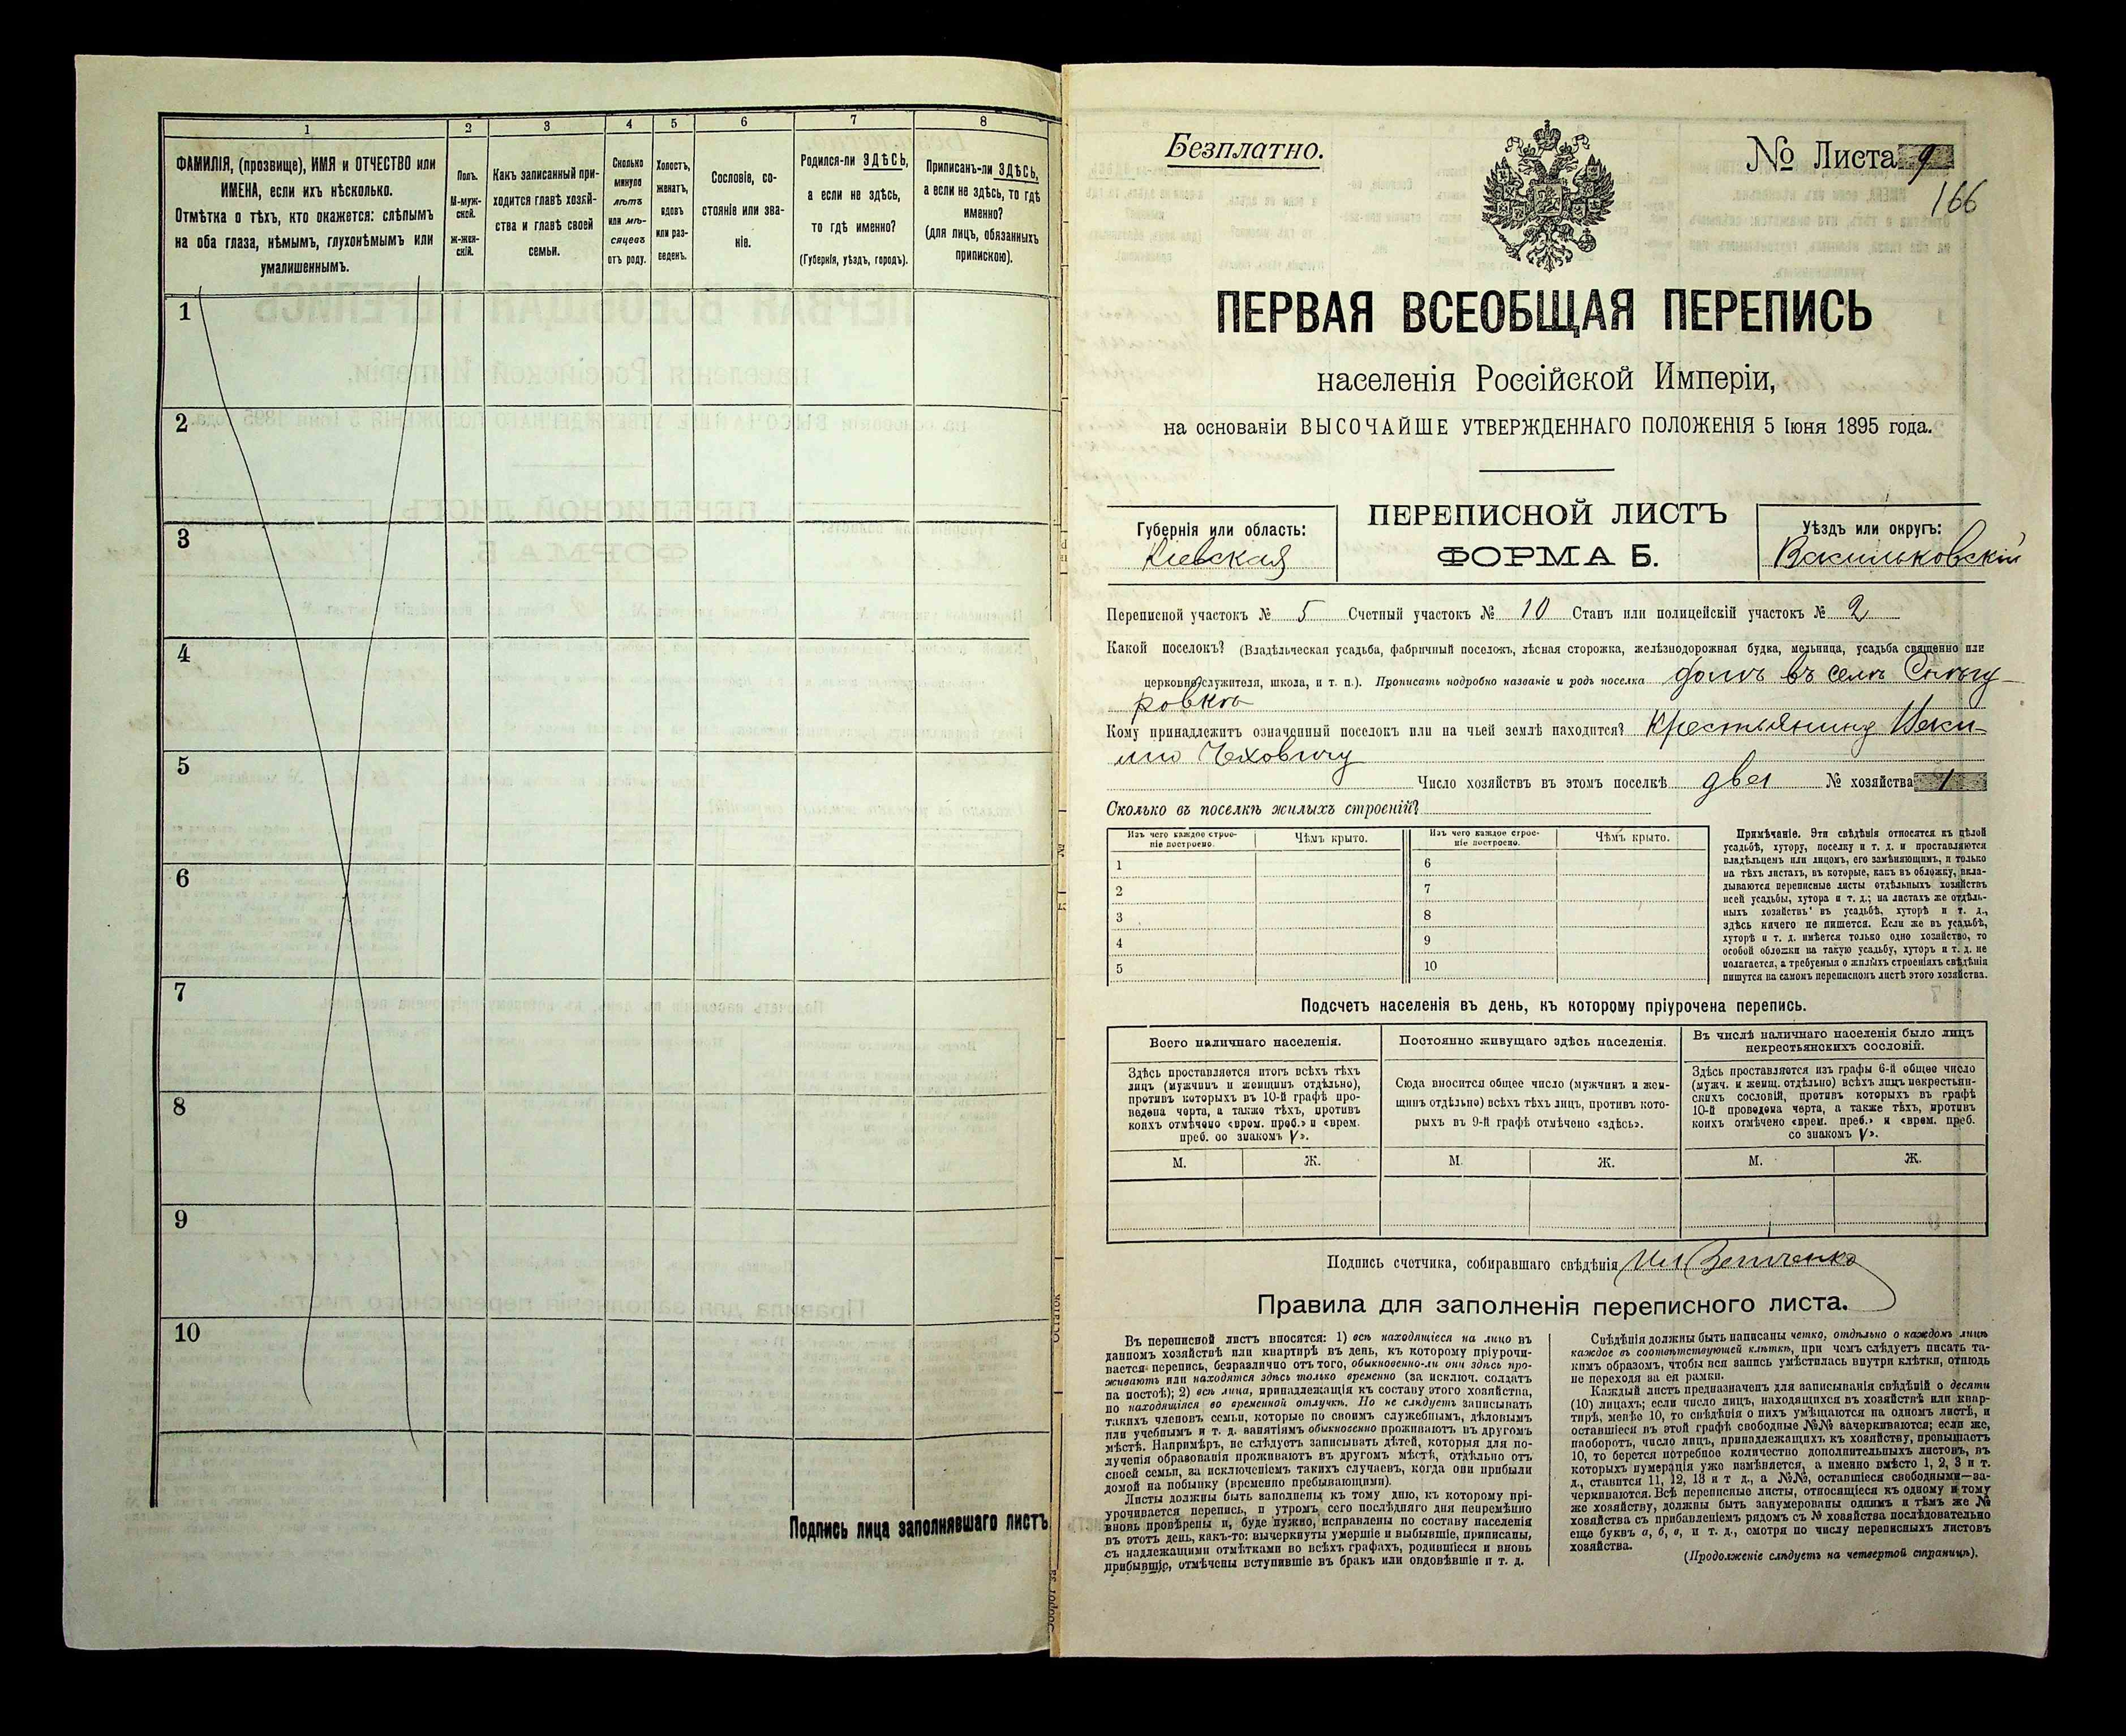 1 2 3 4 5 6 7 8
ФАМИЛІЯ, (прозвище), ИМЯ и ОТЧЕСТВО или
ИМЕНА, если ихъ нѣсколько.
Отмѣтка о тѣхъ, кто окажется: слѣпымъ
на оба глаза, нѣмымъ, глухонѣмымъ или
умалишеннымъ.
Полъ.
М-муж-
ской.
ж-жен-
скій.
Какъ записанный при-
ходится главѣ хозяй-
ства и главѣ своей
семьи.
Сколько
минуло
лѣтъ
или мѣ-
сяцевъ
отъ роду.
Холостъ,
женатъ,
вдовъ
или раз-
веденъ.
Сословіе, со-
стояніе или зва-
ніе.
Родился-ли ЗДѢСЬ,
а если не здѣсь,
то гдѣ именно?
(Губернія, уѣздъ, городъ).
Приписанъ-ли ЗДѢСЬ,
а если не здѣсь, то гдѣ
именно?
(для лицъ, обязанныхъ
припискою).
1
2
3
4
5
6
7
8
9
10
Подпись лица заполнявшаго листъ
Безплатно.
№ Листа 9
166
ПЕРВАЯ ВСЕОБЩАЯ ПЕРЕПИСЬ
населенія Россійской Имперіи,
на основаніи ВЫСОЧАЙШЕ УТВЕРЖДЕННАГО ПОЛОЖЕНІЯ 5 Іюня 1895 года.
Губернія или область:
Кіевская
ПЕРЕПИСНОЙ ЛИСТЪ
ФОРМА Б.
Уѣздъ или округъ:
Васильковскій
Переписной участокъ № 5 Счетный участокъ № 10 Станъ или полицейскій участокъ № 2
Какой поселокъ? (Владѣльческая усадьба, фабричный поселокъ, лѣсная сторожка, желѣзнодорожная будка, мельница, усадьба священно или
церковнослужителя, школа, и т. п.). Прописать подробно названіе и родъ поселка домъ въ селѣ Снѣгу-
ровкѣ
Кому принадлежитъ означенный поселокъ или на чьей землѣ находится? Крестьянину
Чеховичу
Число хозяйствъ въ этомъ поселкѣ два № хозяйства 1
Сколько въ поселкѣ жилыхъ строеній?
Изъ чего каждое строе-
ніе построено.
Чѣмъ крыто.
Изъ чего каждое строе-
ніе построено.
Чѣмъ крыто.
1 6
2 7
3 8
4 9
5 10
Примѣчаніе. Эти свѣдѣнія относятся къ цѣлой
усадьбѣ, хутору, поселку и т. д. и проставляются
владѣльцемъ или лицомъ, его замѣняющимъ, и только
на тѣхъ листахъ, въ которые, какъ въ обложку, вкла-
дываются переписные листы отдѣльныхъ хозяйствъ
всей усадьбы, хутора и т. д.; на листахъ же отдѣль-
ныхъ хозяйствъ въ усадьбѣ, хуторѣ и т. д.,
здѣсь ничего не пишется. Если же въ усадьбѣ,
хуторѣ и т. д. имѣется только одно хозяйство, то
особой обложки на такую усадьбу, хуторъ и т. д. не
полагается, а требуемыя о жилыхъ строеніяхъ свѣдѣнія
пишутся на самомъ переписномъ листѣ этого хозяйства.
Подсчетъ населенія въ день, къ которому пріурочена перепись.
Всего наличнаго населенія.
Постоянно живущаго здѣсь населенія.
Въ числѣ наличнаго населенія было лицъ
некрестьянскихъ сословій.
Здѣсь проставляется итогъ всѣхъ тѣхъ
лицъ (мужчинъ и женщинъ отдѣльно),
противъ которыхъ въ 10-й графѣ про-
ведена черта, а также тѣхъ, противъ
коихъ отмѣчено «врем. преб.» и «врем.
преб. со знакомъ V».
Сюда вносится общее число (мужчинъ и жен-
щинъ отдѣльно) всѣхъ тѣхъ лицъ, противъ кото-
рыхъ въ 9-й графѣ отмѣчено «здѣсь».
Здѣсь проставляется изъ графы 6-й общее число
(мужч. и женщ. отдѣльно) всѣхъ лицъ некрестьян-
скихъ сословій, противъ которыхъ въ графѣ
10-й проведена черта, а также тѣхъ, противъ
коихъ отмѣчено «врем. преб.» и «врем. преб.
со знакомъ V».
М. Ж. М. Ж. М. Ж.
Подпись счетчика, собиравшаго свѣдѣнія
Правила для заполненія переписного листа.
Въ переписной листъ вносятся: 1) всѣ находящіеся на лицо въ
данномъ хозяйствѣ или квартирѣ въ день, къ которому пріурочи-
вается перепись, безразлично отъ того, обыкновенно-ли они здѣсь про-
живаютъ или находятся здѣсь только временно (за исключ. солдатъ
на постоѣ); 2) всѣ лица, принадлежащія къ составу этого хозяйства,
но находящіяся во временной отлучкѣ. Но не слѣдуетъ записывать
такихъ членовъ семьи, которые по своимъ служебнымъ, дѣловымъ
или учебнымъ и т. д. занятіямъ обыкновенно проживаютъ въ другомъ
мѣстѣ. Напримѣръ, не слѣдуетъ записывать дѣтей, которыя для по-
лученія образованія проживаютъ въ другомъ мѣстѣ, отдѣльно отъ
своей семьи, за исключеніемъ такихъ случаевъ, когда они прибыли
домой на побывку (временно пребывающими).
Листы должны быть заполнены къ тому дню, къ которому прі-
урочивается перепись, и утромъ сего послѣдняго дня непремѣнно
вновь провѣрены и, буде нужно, исправлены по составу населенія
въ этотъ день, какъ-то: вычеркнуты умершіе и выбывшіе, приписаны,
съ надлежащими отмѣтками во всѣхъ графахъ, родившіеся и вновь
прибывшіе, отмѣчены вступившіе въ бракъ или овдовѣвшіе и т. д.
Свѣдѣнія должны быть написаны четко, отдѣльно о каждомъ лицѣ
каждое въ соотвѣтствующей клѣткѣ, при чемъ слѣдуетъ писать та-
кимъ образомъ, чтобы вся запись умѣстилась внутри клѣтки, отнюдь
не переходя за ея рамки.
Каждый листъ предназначенъ для записыванія свѣдѣній о десяти
(10) лицахъ; если число лицъ, находящихся въ хозяйствѣ или квар-
тирѣ, менѣе 10, то свѣдѣнія о нихъ умѣщаются на одномъ листѣ, и
оставшіеся въ этой графѣ свободные №№ зачеркиваются; если же,
наоборотъ, число лицъ, принадлежащихъ къ хозяйству, превышаетъ
10, то берется потребное количество дополнительныхъ листовъ, въ
которыхъ нумерація уже измѣняется, а именно вмѣсто 1, 2, 3 и т.
д., ставится 11, 12, 13 и т д., а №№, оставшіеся свободными—за-
черкиваются. Всѣ переписные листы, относящіеся къ одному и тому
же хозяйству, должны быть занумерованы однимъ и тѣмъ же №
хозяйства съ прибавленіемъ рядомъ съ № хозяйства послѣдовательно
еще буквъ а, б, в, и т. д., смотря по числу переписныхъ листовъ
хозяйства.
(Продолженіе слѣдуетъ на четвертой страницѣ).